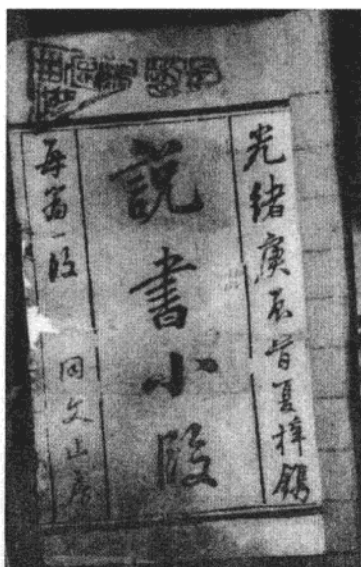 光緒庚辰首夏梓鐫
説書小段
每篇一段 同文山房